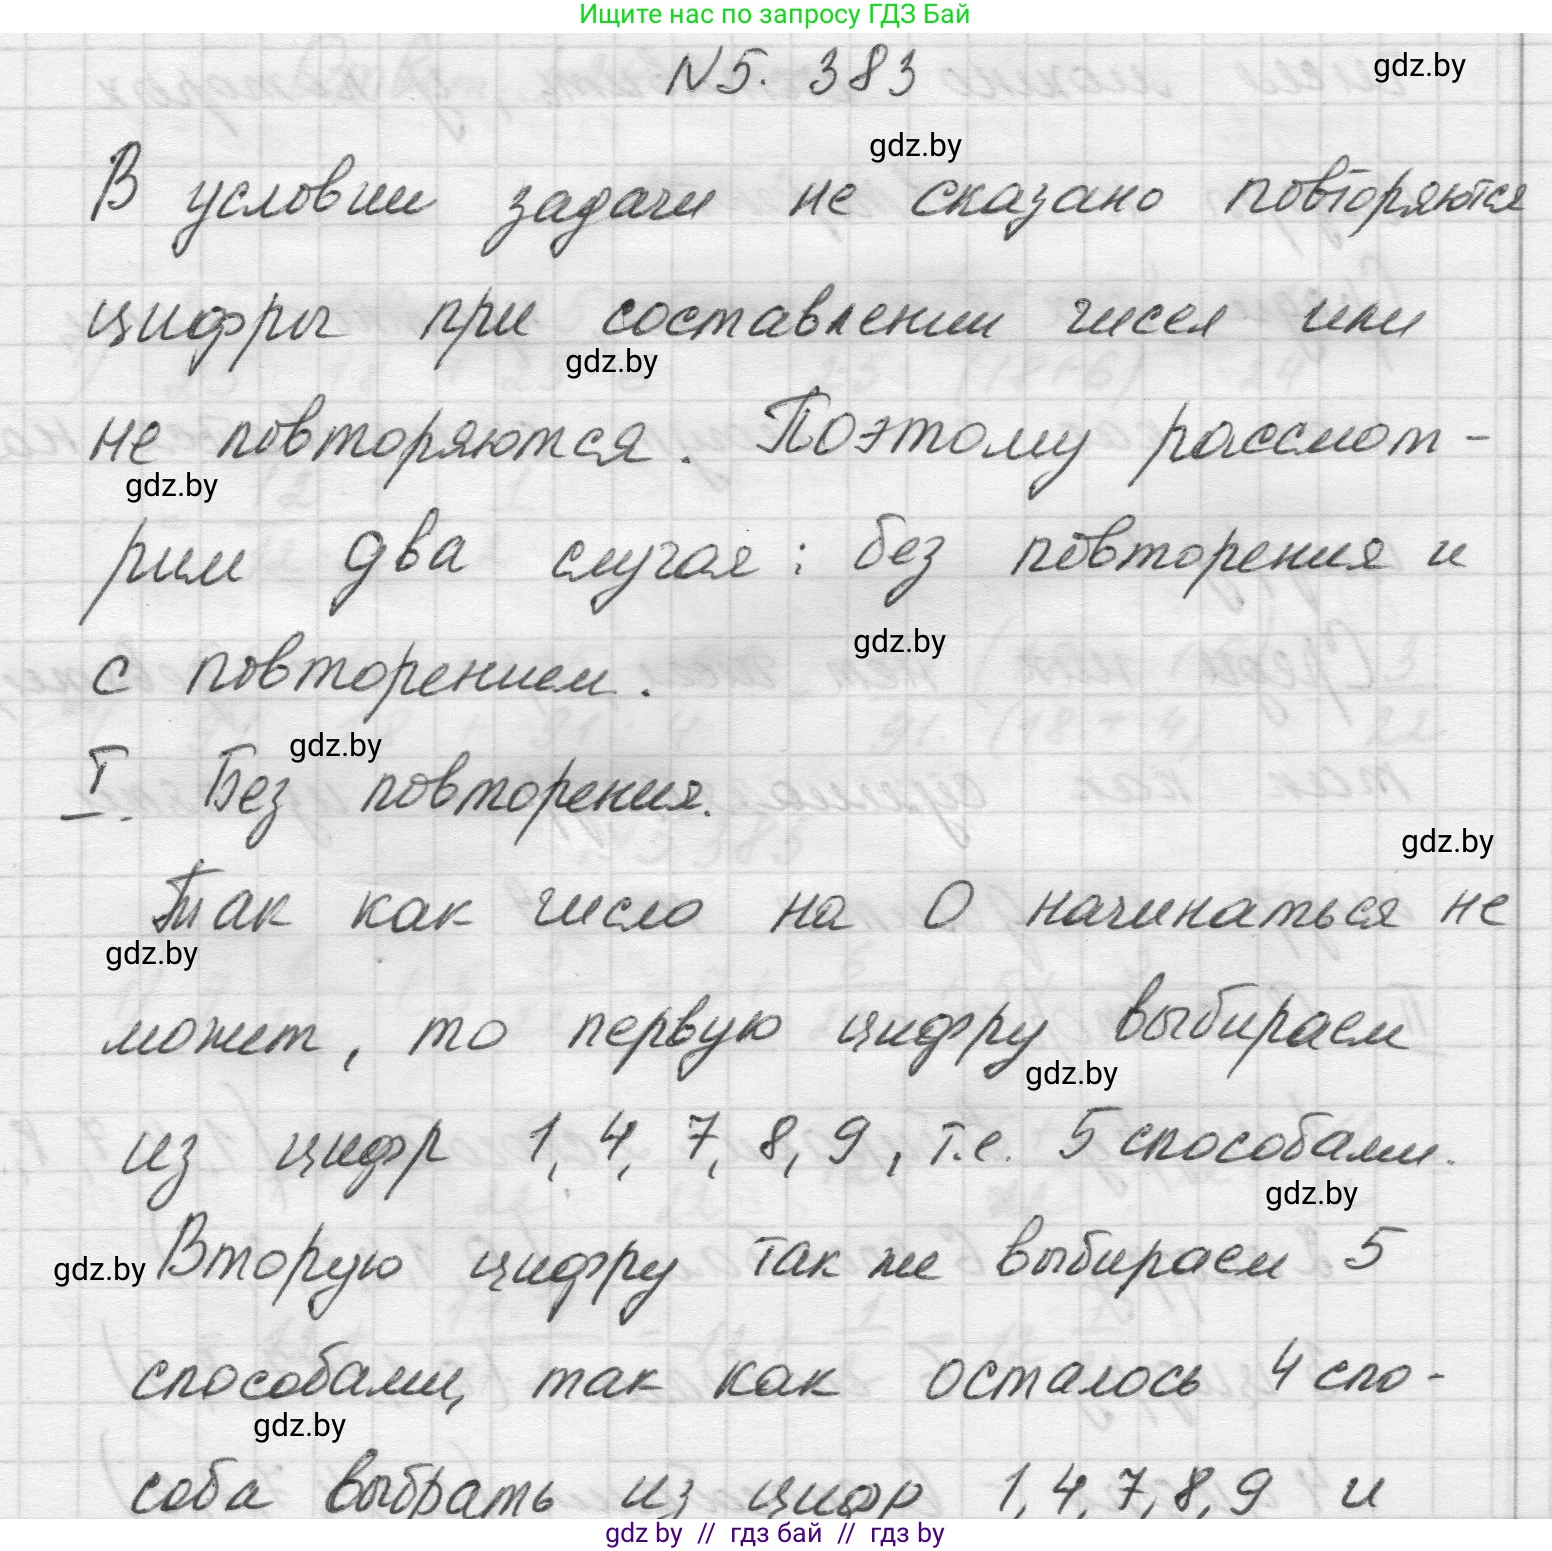 Ищите нас по запросу ГДЗ Бай
N5. 383
gdz.by
gdz.by
В условии задачи не сказано повторяются
цифры при составлении чисел или
gdz.by
не повторяются. Поэтому рассмот-
gdz.by
рим два случая: без повторения и
gdz.by
с повторением.
gdz.by
I. Без повторения.
gdz.by
Так как число на 0 начинаться не
gdz.by
может, то первую цифру выбираем
gdz.by
из цифр 1, 4, 7, 8, 9, т.е. 5 способами.
gdz.by
gdz.by
Вторую цифру так же выбираем 5
способами, так как осталось 4 спо-
gdz.by
соба выбрать из цифр 1,4,7,8,9 и
gdz.by // гдз бай // gdz.by